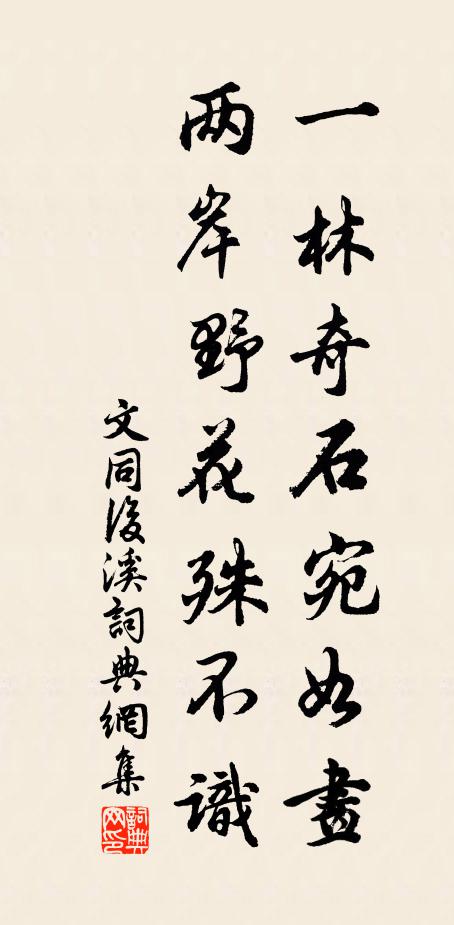 一林奇石宛如畫
两岸野花殊不識
文同後溪詞典網集
詞典网印